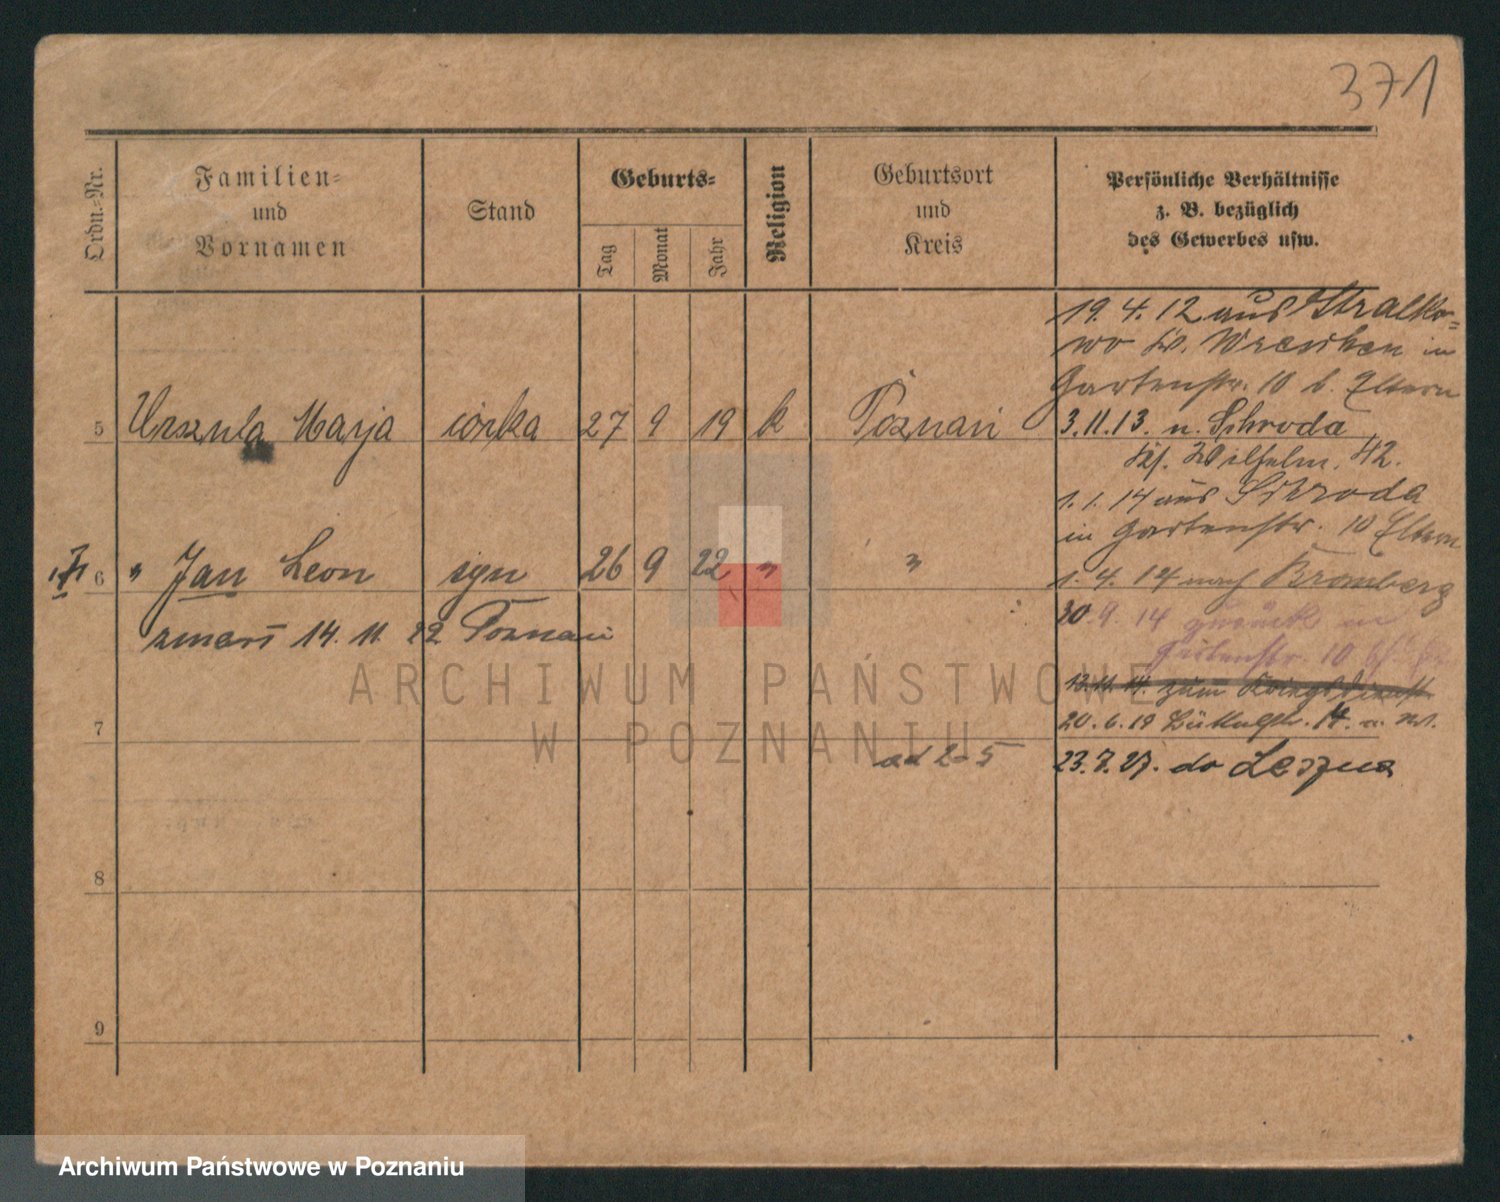 371
Ordn.-Nr.
Familien-
und
Vornamen
Stand
Geburts-
Tag
Monat
Jahr
Religion
Geburtsort
und
Kreis
Persönliche Verhältnisse
z. B. bezüglich
des Gewerbes usw.
19. 4. 12 aus Stralko-
wo Kr. Wreschen in
Gartenstr. 10 b. Eltern
5 Urszula Marja córka 27 9 19 k Poznań
3. 11. 13. n. Schroda
Wilhelm. 42.
1. 1. 14 aus Schroda
in Gartenstr. 10 Eltern
6 " Jan Leon syn 26 9 22 " "
1. 4. 14 nach Bromberg
zmarł 14. 11. 22 Poznań
30. 9. 14 zurück in
Gartenstr. 10
13. 11. 14. zum Kriegsdienst
20. 6. 19 14.
7
od 2-5
23. 7. 27. do Leszna
8
9
ARCHIWUM PAŃSTWOWE
W POZNANIU
Archiwum Państwowe w Poznaniu